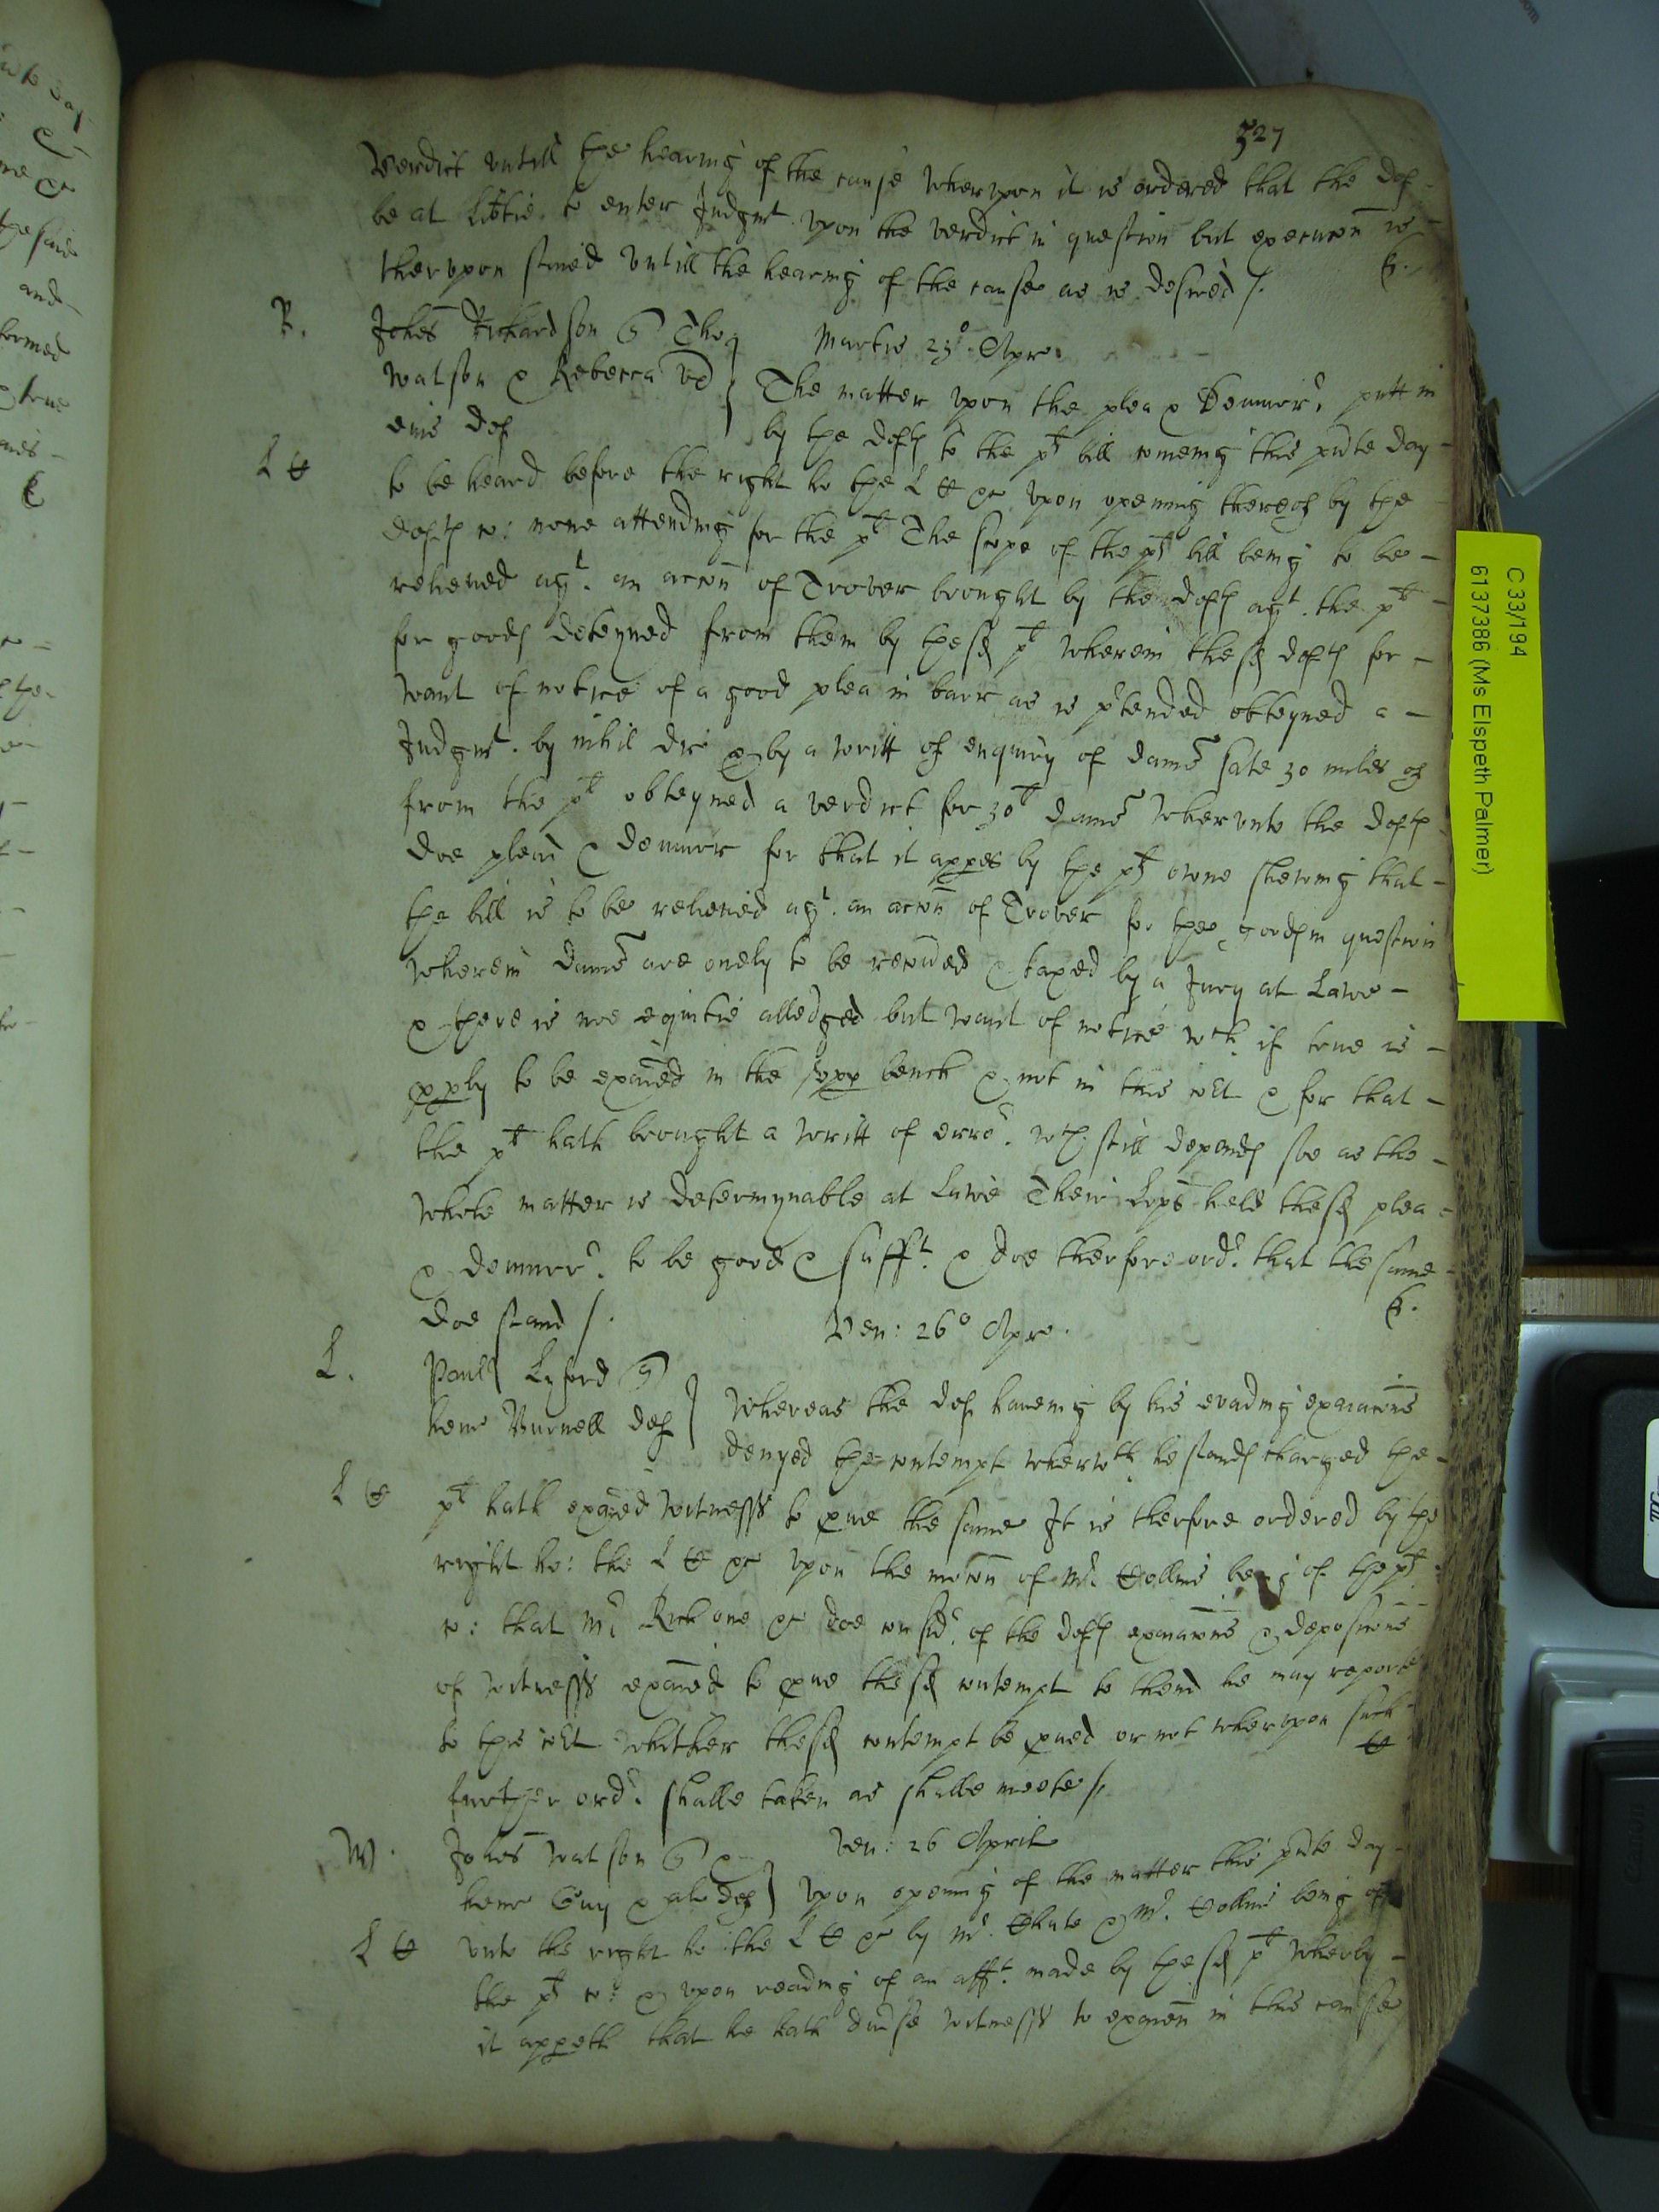 527
Verdict vntill the hearing of the cause wherupon it is ordered that the def
be at libtie to enter Judgmt vpon the verdict in question but execucon is
therupon staied vntill the hearing of the cause as is desired /.
R. Johes Richardson Tho Martis 23o Apr
Watson & Rebecca vx The matter vpon the plea & Demurr putt in
eius def by the deftes to the plt bill comeing this pnte day
L to be heard before the right ho the L &c vpon opening thereof by the
deftes co: none attending for the plt The scope of the pltes bill being to be
releiued agt. an accon of Trover brought by the deftes agt. the plt
for goodes deteyned from them by the sd plt wherein the sd deftes for
want of notice of a good plea in barr as is ptended obteyned a
Judgmt. by nihil dic & by a writt of enquiry of dam sate 30 miles of
from the plt obteyned a verdict for 30l dam wherunto the deftes
doe plead & demurr for that it appes by the pltes owne shewing that
the bill is to be releiued agt. an accon of Trover for the goodes in question
wherein dam are onely to be recoued & taxed by a Jury at Lawe
& there is noe equitie alledged but want of notice wch. if true is
pply to be exaied in the vpp bench & not in this cort & for that
the plt hath brought a writt of erro. wch still dependes soe as the
whole matter is determynable at Lawe Their Lopps held the sd plea
& demurr. to be good & sufft. & doe therfore ord. that the same
doe stand /. Ven: 26o Apr.
L. Paull Lyford
henr Burnell def Whereas the def haueing by his evading examacons
denyed the contempt wherwth. he standes charged the
L plt hath exaied witnesses to pue the same It is therfore ordered by the
right ho: the L &c vpon the mocon of Mr. Collins being of the pltes
co: that Mr Rich one &c doe consid. of the deftes examacons & deposicons
of witnesses exaied to pue the sd contempt to thend he may reporte
to this cort whither the sd contempt be pued or not wherupon such
further ord. shalbe taken as shalbe meete /.
W. Johes Watson Ven: 26 Aprilis
henr Guy & al def Vpon opening of the matter this pnte day
L vnto the right ho the L &c by Mr. & Mr. Collins being of
the plt co: & vpon reading of an afft. made by the sd plt wherby
it appeth that he hath diuse witnesses to examen in this cause
C 33/194
6137386 (Ms Elspeth Palmer)